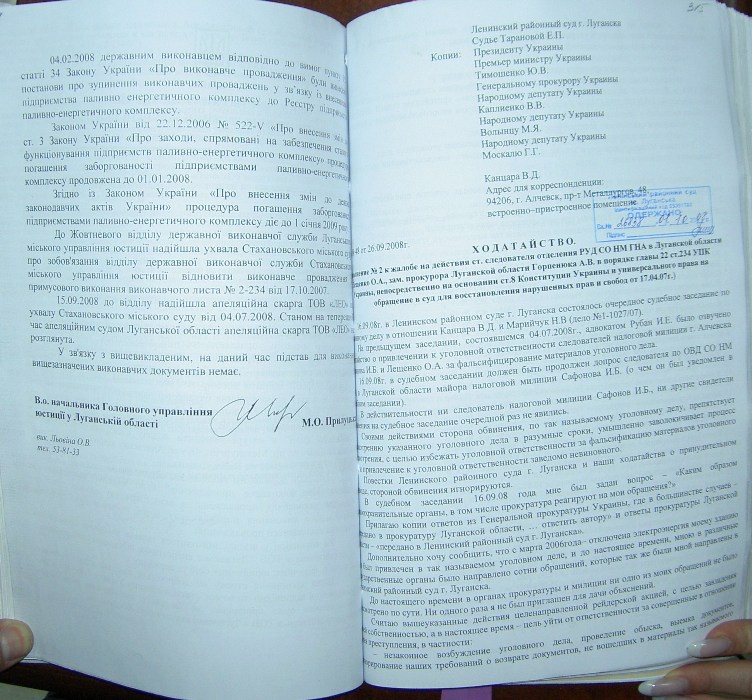 04.02.2008 державним виконавцем відповідно до вимог
статті 34 Закону України «Про виконавче провадження» були
постанови про зупинення виконавчих проваджень у зв'язку із
підприємства паливно енергетичного комплексу до Реєстру
паливно-енергетичного комплексу.
Законом України від 22.12.2006 № 522-V «Про внесення
ст. 3 Закону України «Про заходи, спрямовані на забезпечення
функціонування підприємств паливно-енергетичного комплексу»
погашення заборгованості підприємствами
комплексу продовжена до 01.01.2008.
Згідно із Законом України «Про внесення змін до
законодавчих актів України» процедура погашення
підприємствами паливно-енергетичного комплексу діє до 1 січня 2009
До Жовтневого відділу державної виконавчої служби
міського управління юстиції надійшла ухвала Стахановського міського
про зобов'язання відділу державної виконавчої служби
міського управління юстиції відновити виконавче
примусового виконання виконавчого листа № 2-234 від 17.10.2007.
15.09.2008 до відділу надійшла апеляційна скарга ТОВ «ЛЕО»
ухвалу Стахановського міського суду від 04.07.2008. Станом на
час апеляційним судом Луганської області апеляційна скарга ТОВ «ЛЕО»
розглянута.
У зв'язку з вищевикладеним, на даний час підстав для
вищезазначених виконавчих документів немає.
В.о. начальника Головного управління
юстиції у Луганській області
М.О.
вик. Львова О.В
тел. 53-81-33
Ленинский районный суд г. Луганска
Судье Тарановой Е.П.
Копии: Президенту Украины
Премьер министру Украины
Тимошенко Ю.В.
Генеральному прокурору Украины
Народному депутату Украины
Каплиенко В.В.
Народному депутату Украины
Волынцу М.Я.
Народному депутату Украины
Москалю Г.Г.
Канцара В.Д.
Адрес для корреспонденции:
94206, г. Алчевск, пр-т Металлургов, 48,
встроенно–пристроенное помещение
от 26.09.2008г.
ХОДАТАЙСТВО.
№ 2 к жалобе на действия ст. следователя отделения РУД СО НМ ГНА в Луганской области
О.А., зам. прокурора Луганской области Горпенюка А.В. в порядке главы 22 ст.234 УПК
непосредственно на основании ст.8 Конституции Украины и универсального права на
обращение в суд для восстановления нарушенных прав и свобод от 17.04.07г.)
в Ленинском районном суде г. Луганска состоялось очередное судебное заседание по
делу в отношении Канцара В.Д. и Марийчук Н.В (дело №1-1027/07).
На предыдущем заседании, состоявшемся 04.07.2008г., адвокатом Рубан И.Е. было озвучено
о привлечении к уголовной ответственности следователей налоговой милиции г. Алчевска
И.Б. и Лещенко О.А. за фальсифицирование материалов уголовного дела.
16.09.08г. в судебном заседании должен быть продолжен допрос следователя по ОВД СО НМ
Луганской области майора налоговой милиции Сафонова И.Б. (о чем он был уведомлен в
заседании).
действительности ни следователь налоговой милиции Сафонов И.Б., ни другие свидетели
на судебное заседание очередной раз не явились.
Своими действиями сторона обвинения, по так называемому уголовному делу, препятствует
указанного уголовного дела в разумные сроки, умышленно заволокичивает процесс
с целью избежать уголовной ответственности за фальсификацию материалов уголовного
привлечение к уголовной ответственности заведомо невиновного.
Повестки Ленинского районного суда г. Луганска и наши ходатайства о принудительном
стороной обвинения игнорируются.
В судебном заседании 16.09.08 года мне был задан вопрос – «Каким образом
органы, в том числе прокуратура реагируют на мои обращения?»
Прилагаю копии ответов из Генеральной прокуратуры Украины, где в большинстве случаев -
в прокуратуру Луганской области, … ответить автору» и ответы прокуратуры Луганской
– «передано в Ленинский районный суд г. Луганска».
Дополнительно хочу сообщить, что с марта 2006года – отключена электроэнергия моему зданию
был привлечен в так называемом уголовном деле, и до настоящего времени, мною в различные
органы было направлено сотни обращений, которые так же были мной направлены в
районный суд г. Луганска.
До настоящего времени в органах прокуратуры и милиции ни одно из моих обращений не было
по сути. Ни одного раза я не был приглашен для дачи объяснений.
Считаю вышеуказанные действия целенаправленной рейдерской акцией, с целью завладения
собственностью, а в настоящее время – цель уйти от ответственности за совершенные в отношении
преступления, в частности:
- незаконное возбуждение уголовного дела, проведение обыска, выемка документов,
наших требований о возврате документов, не вошедших в материалы так